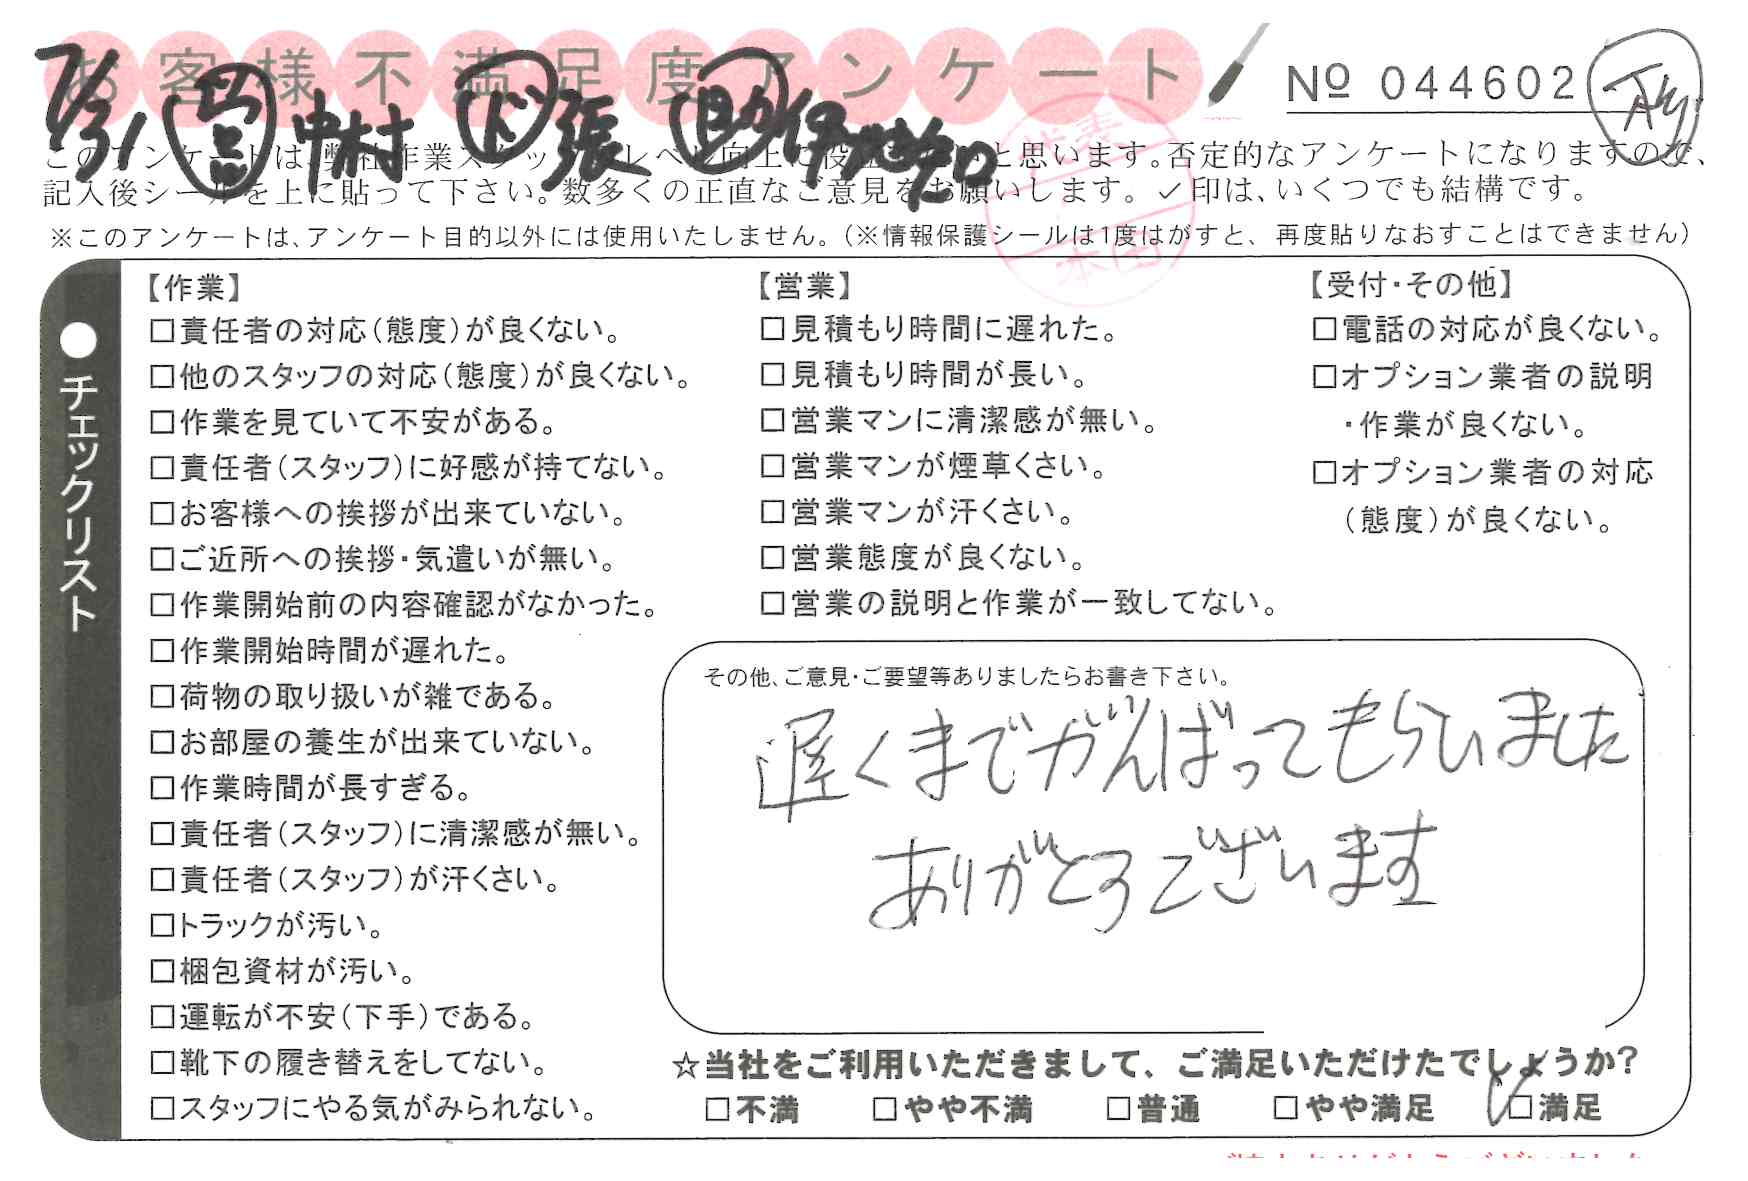 お客様不満足度アンケート
№ 044602
7/31 営 中村 ド 張 助 伊地知
このアンケートは、弊社作業スタッフのレベル向上に役立てたいと思います。否定的なアンケートになりますので、
記入後シールを上に貼って下さい。数多くの正直なご意見をお願いします。✓印は、いくつでも結構です。
※このアンケートは、アンケート目的以外には使用いたしません。(※情報保護シールは1度はがすと、再度貼りなおすことはできません)
●チェックリスト
【作業】
□責任者の対応(態度)が良くない。
□他のスタッフの対応(態度)が良くない。
□作業を見ていて不安がある。
□責任者(スタッフ)に好感が持てない。
□お客様への挨拶が出来ていない。
□ご近所への挨拶・気遣いが無い。
□作業開始前の内容確認がなかった。
□作業開始時間が遅れた。
□荷物の取り扱いが雑である。
□お部屋の養生が出来ていない。
□作業時間が長すぎる。
□責任者(スタッフ)に清潔感が無い。
□責任者(スタッフ)が汗くさい。
□トラックが汚い。
□梱包資材が汚い。
□運転が不安(下手)である。
□靴下の履き替えをしてない。
□スタッフにやる気がみられない。
【営業】
□見積もり時間に遅れた。
□見積もり時間が長い。
□営業マンに清潔感が無い。
□営業マンが煙草くさい。
□営業マンが汗くさい。
□営業態度が良くない。
□営業の説明と作業が一致してない。
【受付・その他】
□電話の対応が良くない。
□オプション業者の説明
・作業が良くない。
□オプション業者の対応
(態度)が良くない。
その他、ご意見・ご要望等ありましたらお書き下さい。
遅くまでがんばってもらいました
ありがとうございます
☆当社をご利用いただきまして、ご満足いただけたでしょうか?
□不満 □やや不満 □普通 □やや満足 ✓□満足